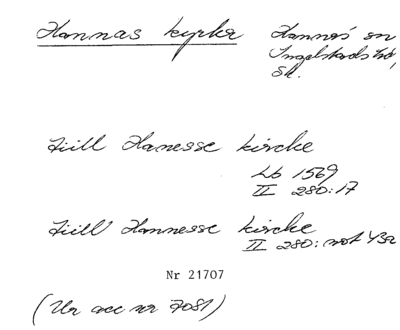 Hannas kyrka
Hannas sn
Ingelstads hd,
Sk.
tiill Hanesse kircke
Lb 1569
II 280:17
tiill Hannesse kircke
II 280: not 43a
Nr 21707
(Ur acc nr 7081)